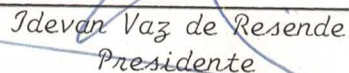 Idevan Vaz de Resende
Presidente